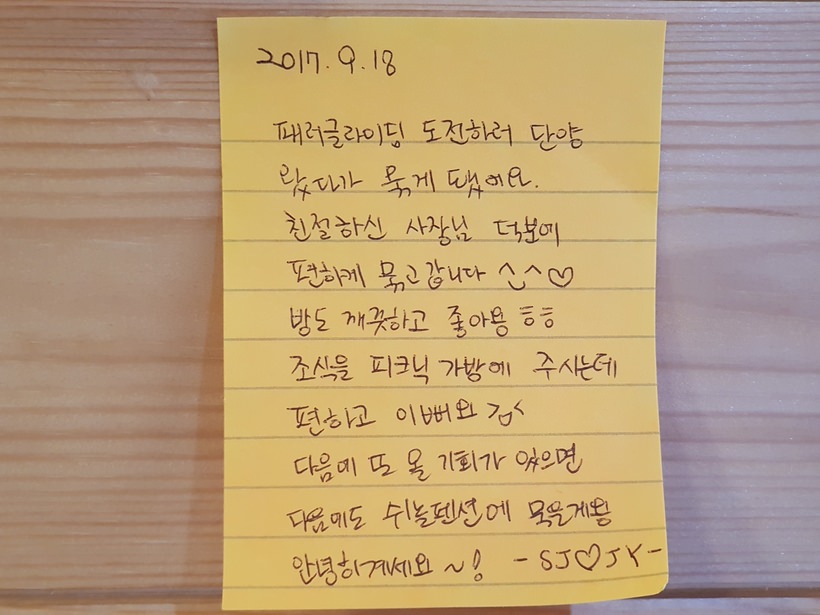 2017. 9. 18
패러글라이딩 도전하러 단양
왔다가 묵게 됐어요.
친절하신 사장님 덕분에
편하게 묵고갑니다 ^^♡
방도 깨끗하고 좋아용 ㅎㅎ
조식을 피크닉 가방에 주시는데
편하고 이뻐요
다음에 또 올 기회가 있으면
다음에도 쉬눌펜션에 묵을게용
안녕하계세요 ~! - SJ♡JY -